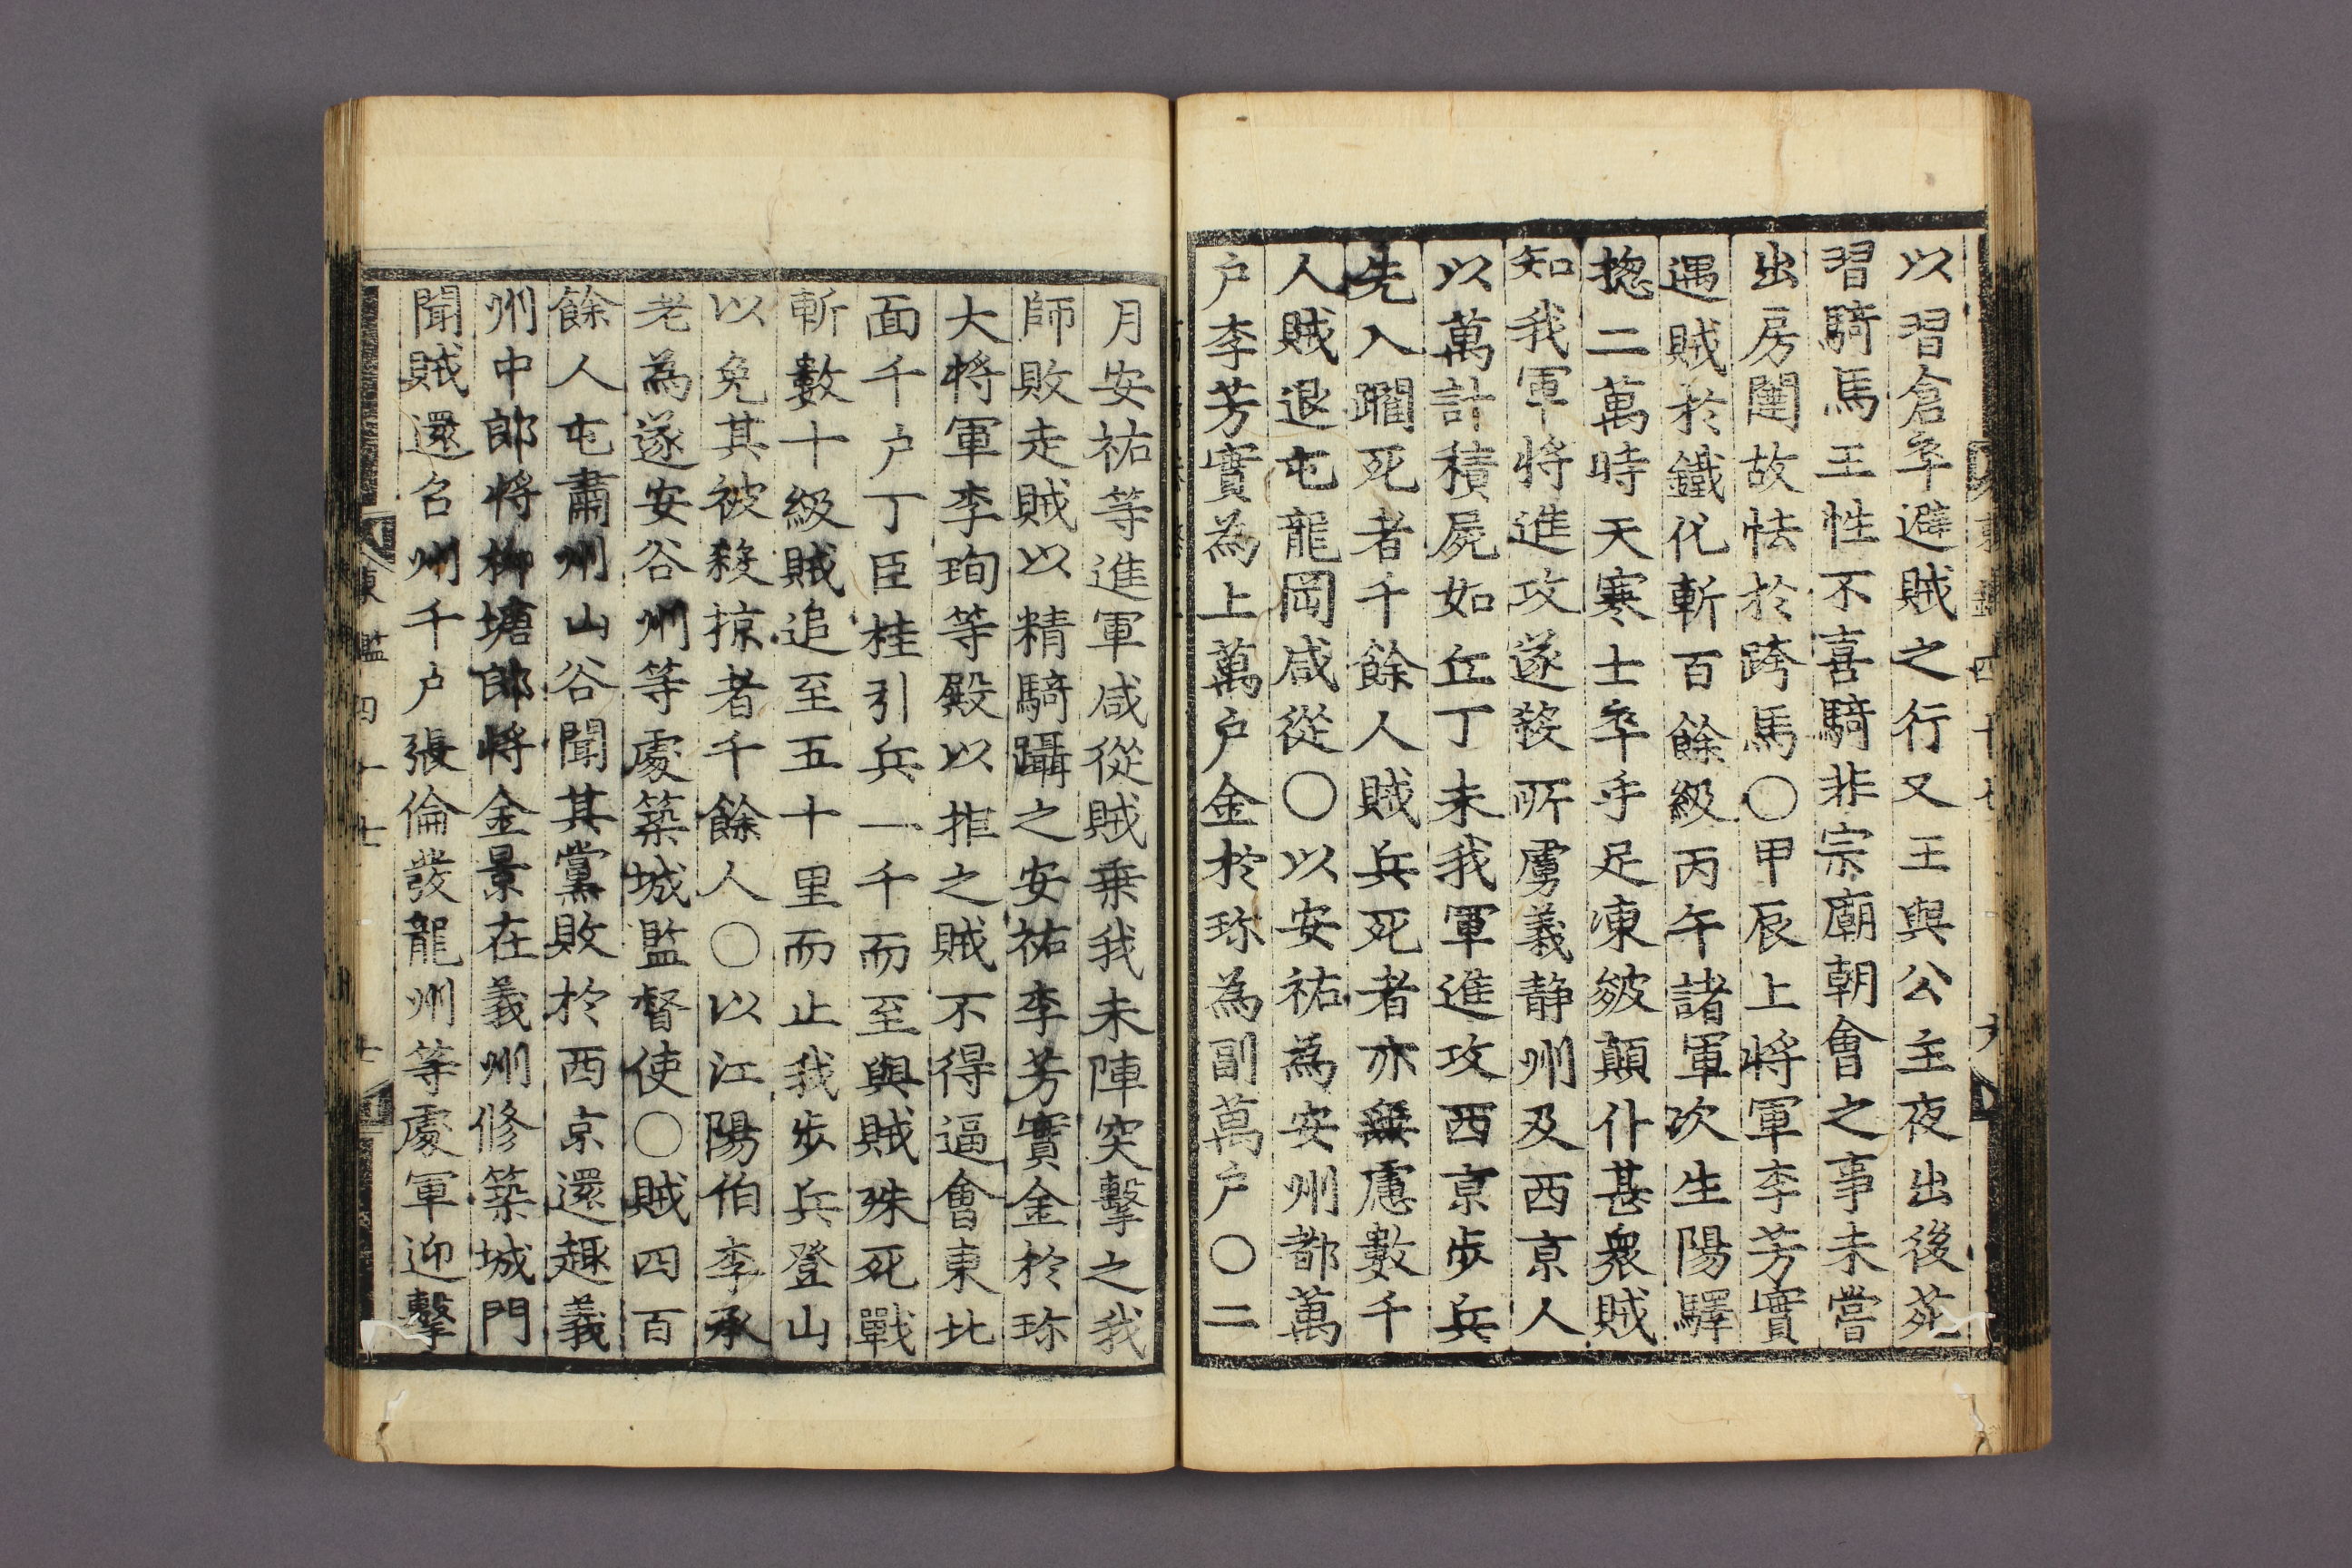 以習倉卒避賊之行又王與公主夜出後苑
習騎馬王性不喜騎非宗廟朝會之事未嘗
出房闥故怯於跨馬○甲辰上將軍李芳實
遇賊於鐵化斬百餘級丙午諸軍次生陽驛
揔二萬時天寒士卒手足凍皴顚仆甚衆賊
知我軍將進攻遂殺所虜義静州及西京人
以萬計積屍如丘丁未我軍進攻西京步兵
先入躙死者千餘人賊兵死者亦無慮數千
人賊退屯龍岡咸從○以安祐爲安州都萬
户李芳實爲上萬户金於珎爲副萬户○二
月安祐等進軍咸從賊乗我未陣突擊之我
師敗走賊以精騎躡之安祐李芳實金於珎
大將軍李珣等殿以拒之賊不得逼會東北
面千户丁臣桂引兵一千而至與賊殊死戰
斬數十級賊追至五十里而止我步兵登山
以免其被殺掠者千餘人○以江陽伯李承
老爲遂安谷州等處築城監督使○賊四百
餘人屯肅州山谷聞其黨敗於西京還趣義
州中郎將柳塘郎將金景在義州修築城門
聞賊還召州千户張倫發龍州等處軍迎擊
東鑑四十七